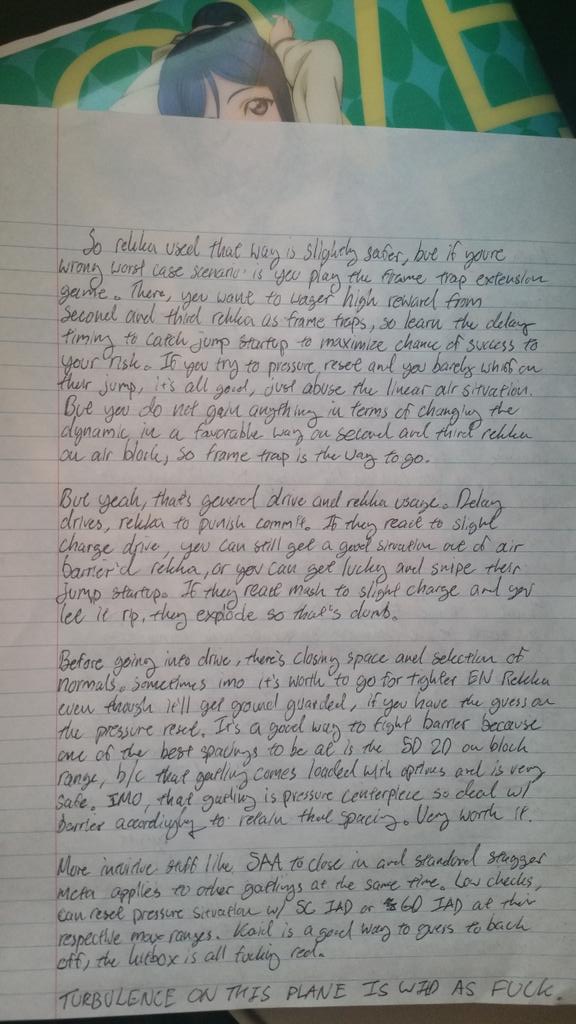 OVE
So rekka used that way is slightly safer, but if youre
wrong worst case scenario is you play the frame trap extension
game. There, you want to wager high reward from
second and third rekka as frame traps, so learn the delay
timing to catch jump startup to maximize chance of success to
your risk. If you try to pressure reset and you barely whiff on
their jump, it's all good, just abuse the linear air situation.
But you do not gain anything in terms of changing the
dynamic in a favorable way on second and third rekka
on air block, so frame trap is the way to go.
But yeah, that's general drive and rekka usage. Delay
drives, rekka to punish commit. If they react to slight
charge drive, you can still get a good situation out of air
barrier'd rekka, or you can get lucky and snipe their
jump startup. If they read mash to slight charge and you
let it rip, they explode so that's dumb.
Before going into drive, there's closing space and selection of
normals. Sometimes imo it's worth to go for tighter EN Rekka
even though it'll get ground guarded, if you have the guess on
the pressure reset. It's a good way to fight barrier because
one of the best spacings to be at is the 5D 2D on block
range, b/c that gatling comes loaded with options and is very
safe. IMO, that gatling is pressure centerpiece so deal w/
barrier accordingly to retain that spacing. Very worth it.
More intuitive stuff like 5AA to close in and standard stagger
meta applies to other gatlings at the same time. Low checks,
can reset pressure situation w/ 5C IAD or 6D IAD at their
respective max ranges. Kaid is a good way to guess to back
off, the hitbox is all fucking red.
TURBULENCE ON THIS PLANE IS WILD AS FUCK.